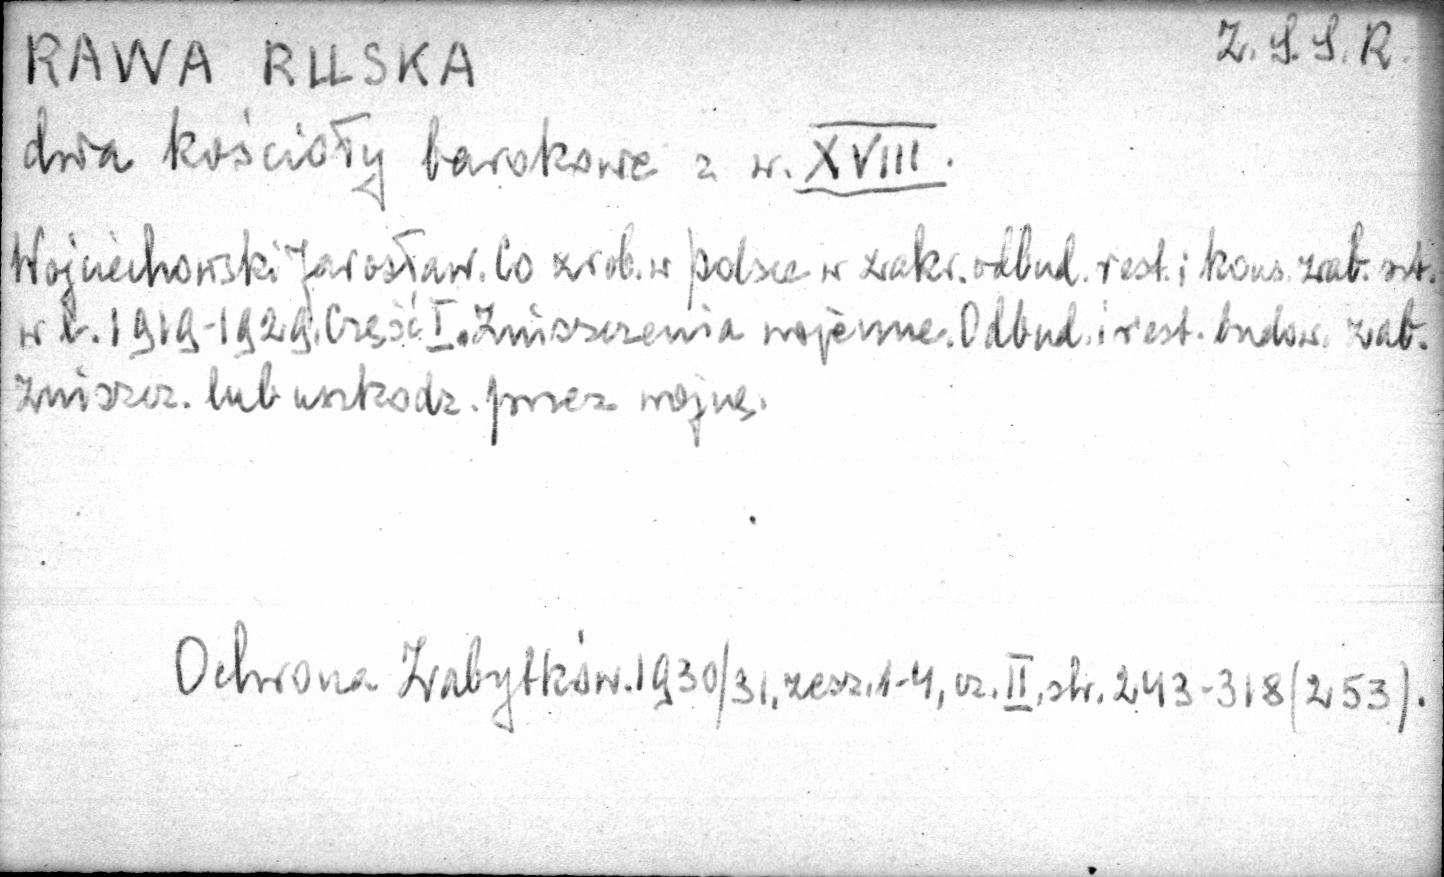 RAWA RUSKA Z.S.S.R.
dwa kościoły barokowe z w. XVIII.
Wojciechowski Jarosław. Co zrob. w polsce w zakr. odbud. rest. i kons. zab. szt.
w l. 1919-1929. Część I. Zniszczenia wojenne. Odbud. i rest. budow. zab.
zniszcz. lub uszkodz. przez wojnę.
Ochrona Zabytków. 1930/31, zesz. 1-4, cz. II, str. 243-318 (253).